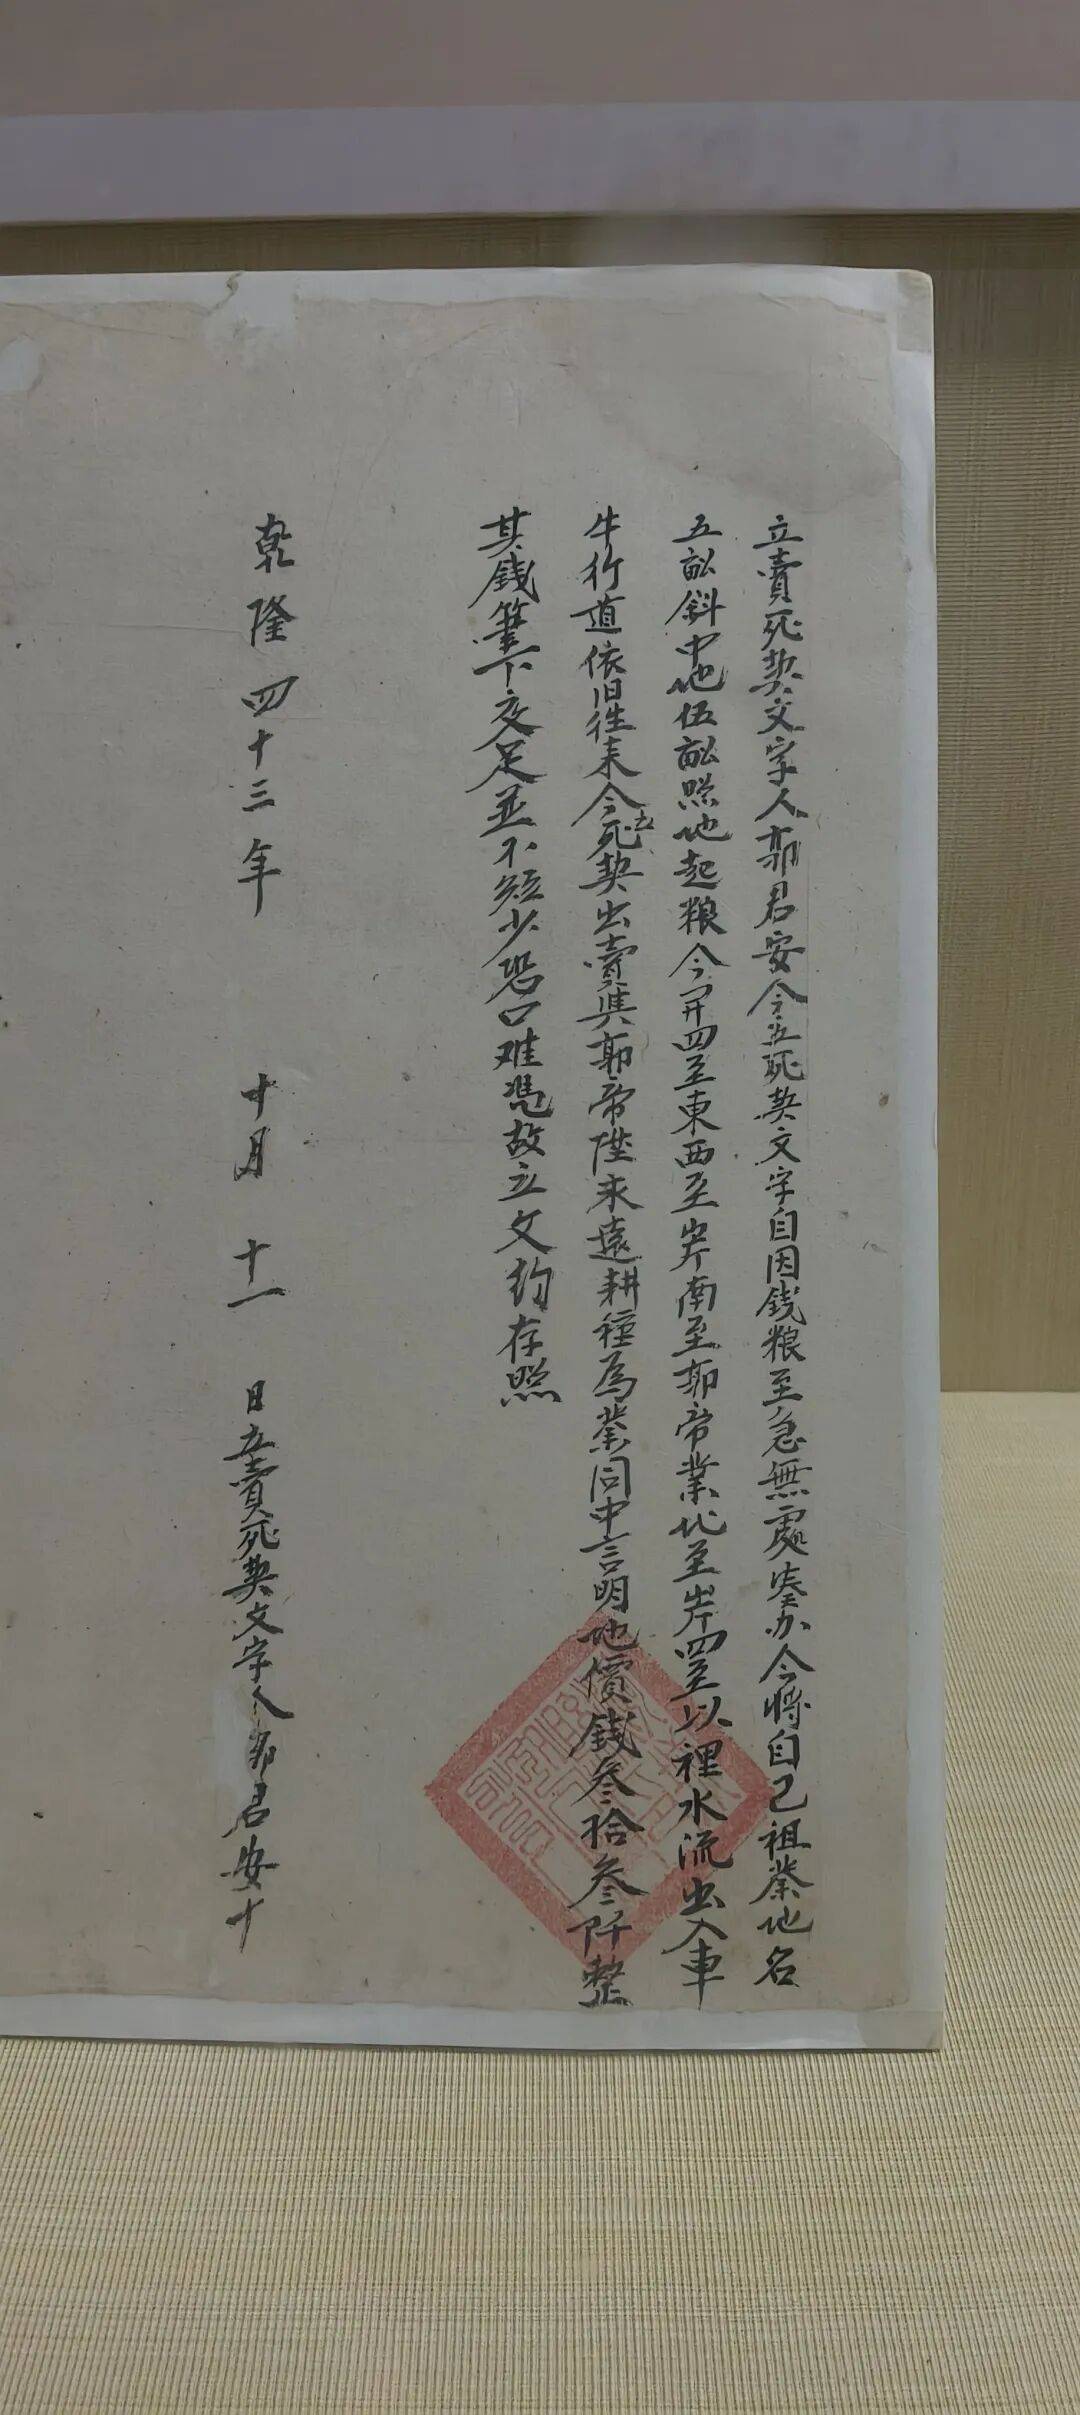 立賣死契文字人郭君安今立死契文字自因錢粮至急無處湊办今將自己祖業地名
五畝斜中地伍畝照地起粮今開四至東西至岸南至郭帝業北至岸四至以裡水流出入車
牛行道依旧往来今立死契出賣與郭帝陞永遠耕種為業同中言明地價錢叁拾叁仟整
其錢筆下交足並不短少恐口难憑故立文约存照
乾隆四十三年 十月 十一 日立賣死契文字人郭君安十